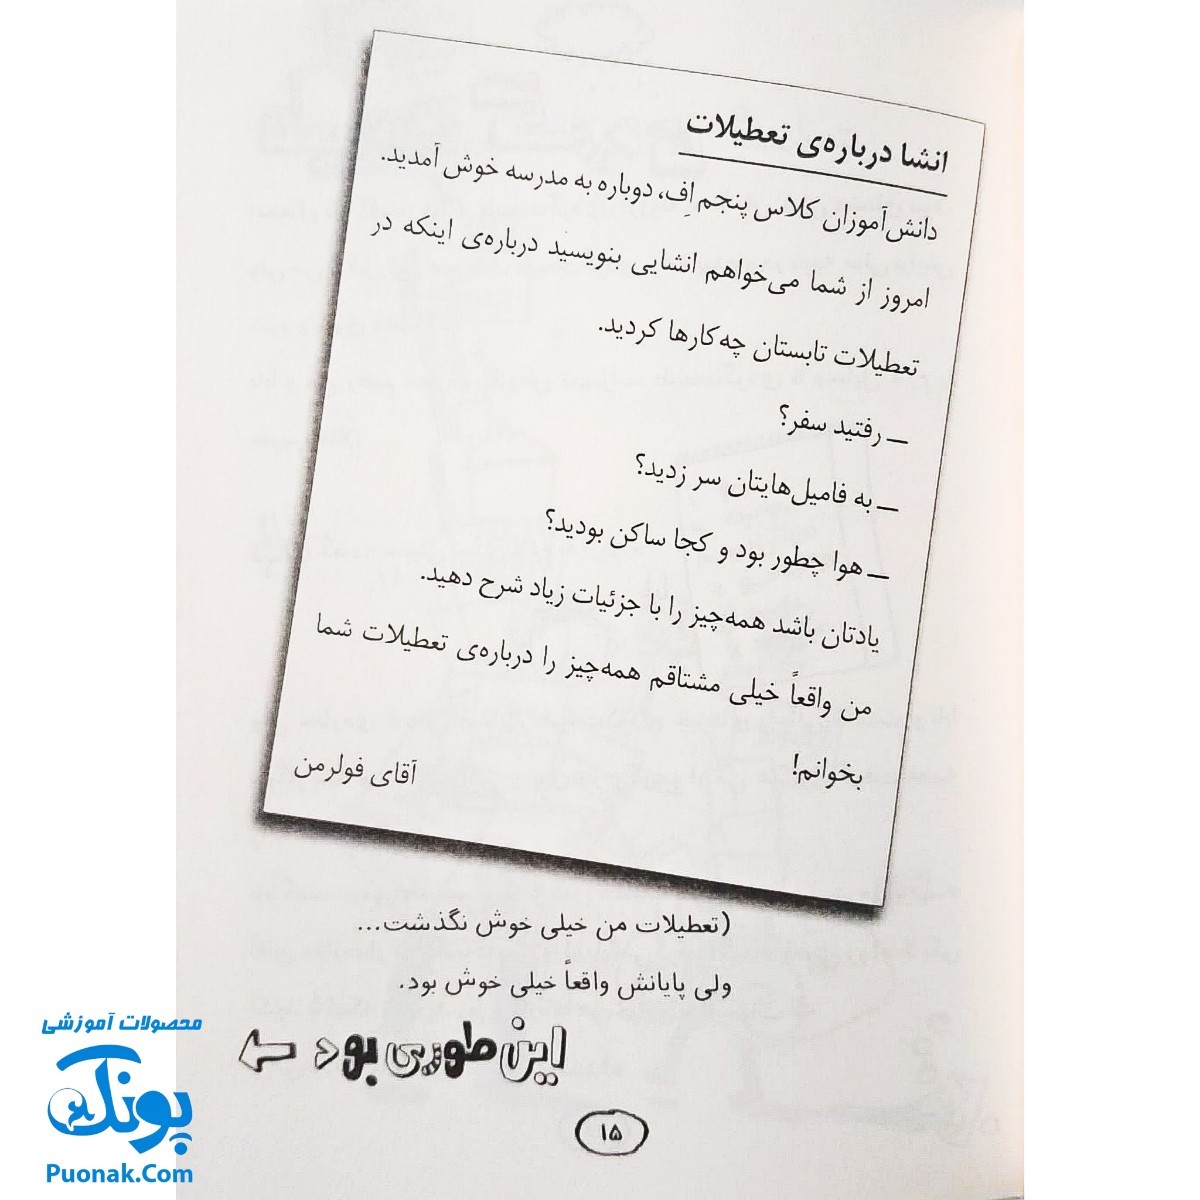 انشا درباره‌ی تعطیلات
دانش‌آموزان کلاس پنجم اِف، دوباره به مدرسه خوش آمدید.
امروز از شما می‌خواهم انشایی بنویسید درباره‌ی اینکه در
تعطیلات تابستان چه‌کارها کردید.
ـ رفتید سفر؟
ـ به فامیل‌هایتان سر زدید؟
ـ هوا چطور بود و کجا ساکن بودید؟
یادتان باشد همه‌چیز را با جزئیات زیاد شرح دهید.
من واقعاً خیلی مشتاقم همه‌چیز را درباره‌ی تعطیلات شما
بخوانم!
آقای فولرمن
(تعطیلات من خیلی خوش نگذشت...
ولی پایانش واقعاً خیلی خوش بود.
این طوری بود
۱۵
محصولات آموزشی
پونک
Puonak.Com